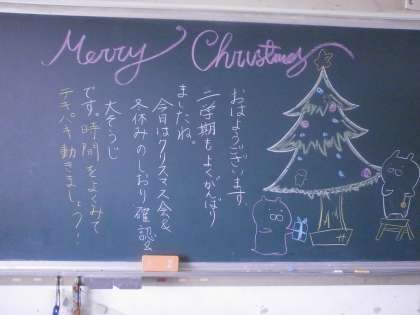 Merry Christmas
おはようございます
二学期もよくがんばり
ましたね。
今日はクリスマス会&
冬休みのしおり確認&
大そうじ
です。時間をよくみて
テキパキ動きましょう!